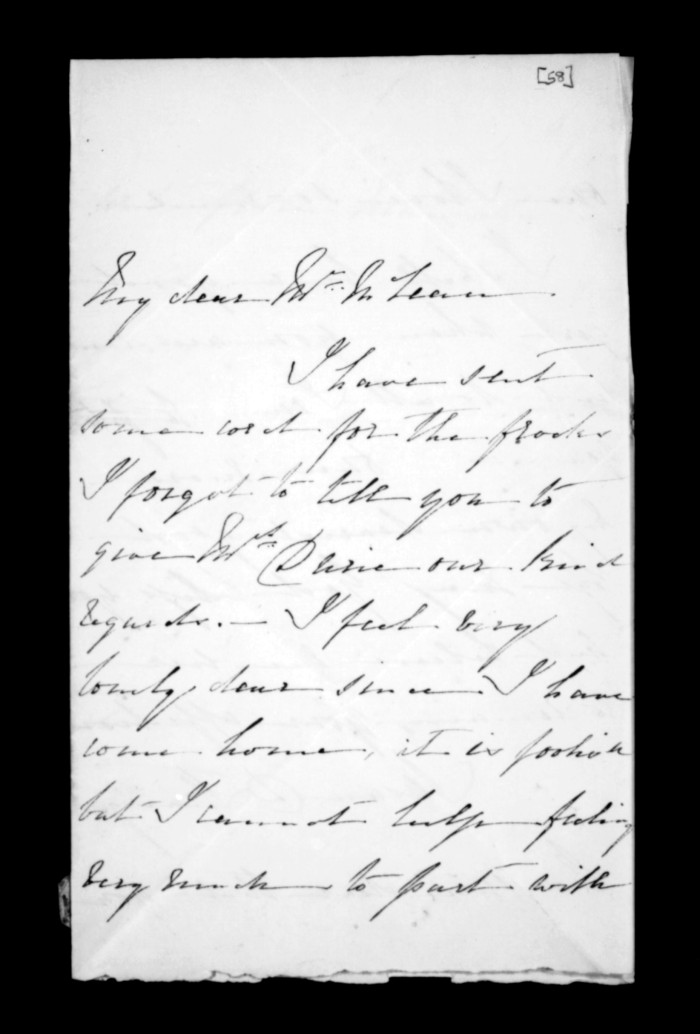 [58]
My dear Mrs. McLean
I have sent
some cord for the frocks
I forgot to tell you to
give Mrs. Durie our kind
regards. — I feel very
lonely dear since I have
come home, it is foolish
but I cannot help feeling
very much to part with